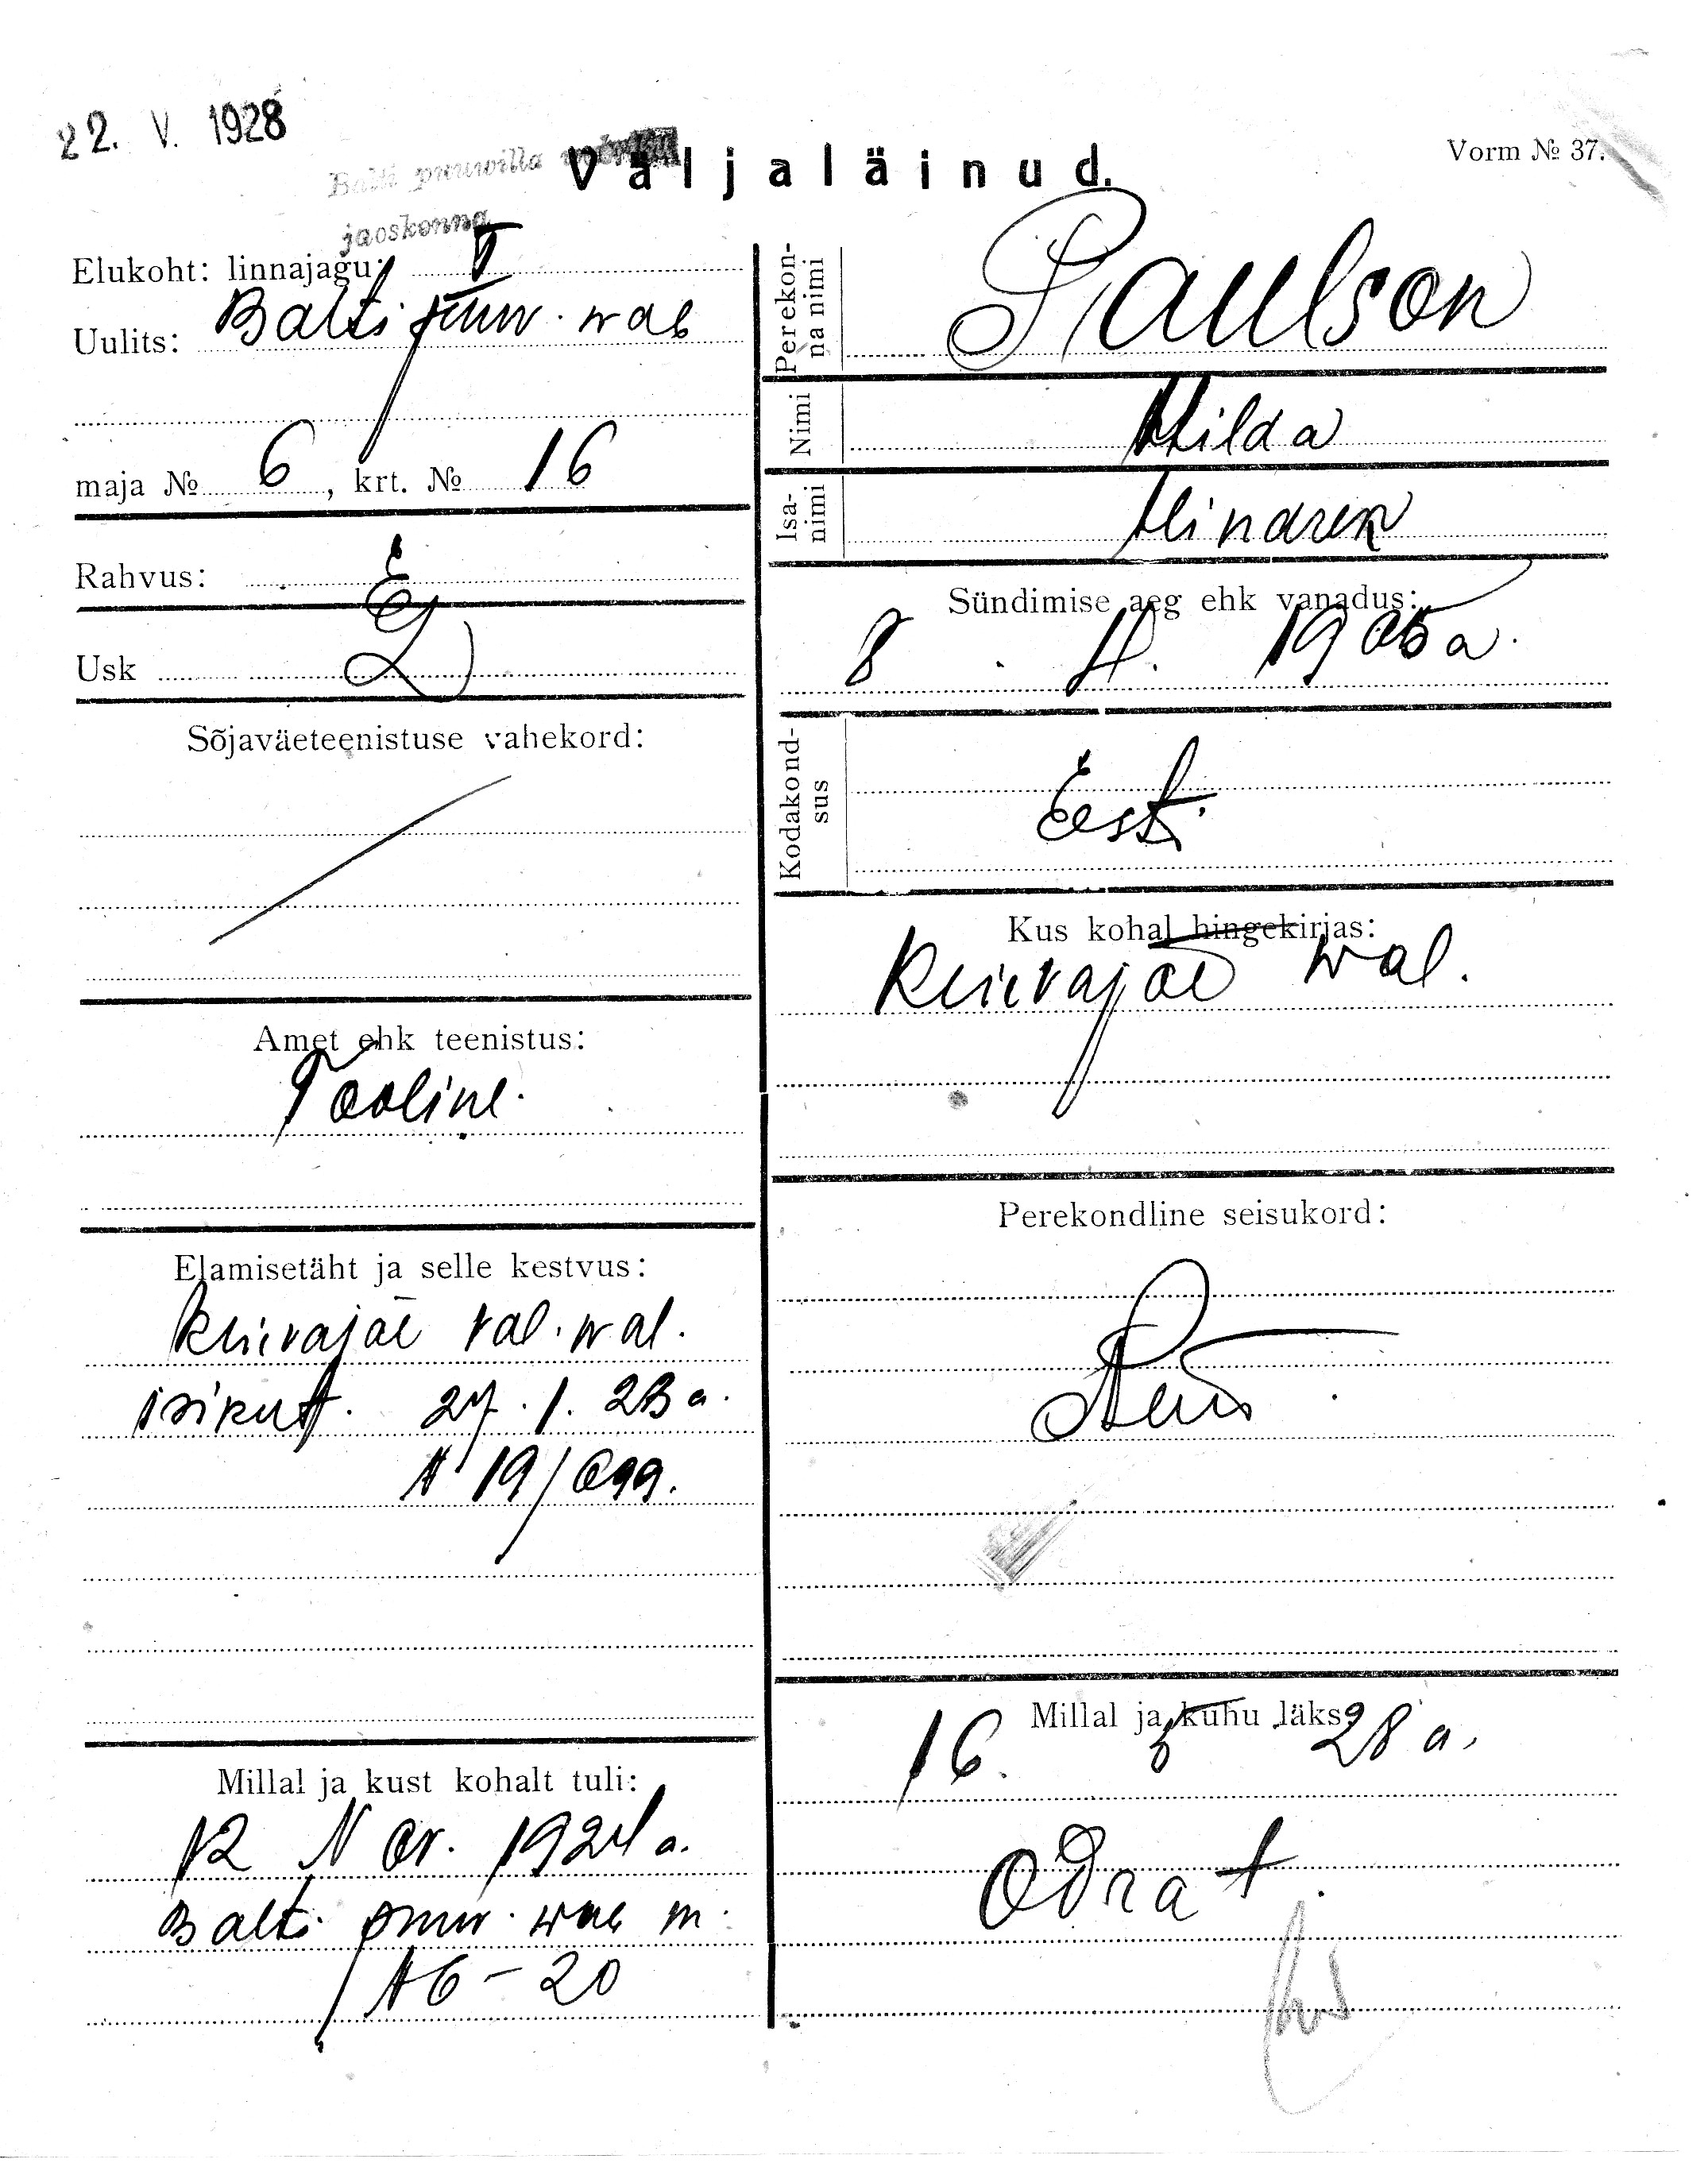 22. V. 1928
Väljaläinud.
Vorm № 37.
Balti puuwilla
jaoskonna
Elukoht: linnajagu: V
Uulits: Balti puuv. wab
maja № 6, krt. № 16
Rahvus: E
Usk L
Sõjaväeteenistuse vahekord:
Amet ehk teenistus:
Tööline.
Elamisetäht ja selle kestvus:
Kiievajäe val. wal.
isikut. 27. 1. 23 a.
№ 19/099.
Millal ja kust kohalt tuli:
12 Nov. 1924 a.
Balti puuv. wab m.
№ 6-20
Perekonna nimi
Paulson
Nimi
Hilda
Isanimi
Hindrek
Sündimise aeg ehk vanadus:
8. 4. 1905 a.
Kodakondsus
Eesti
Kus kohal hingekirjas:
Kiievajäe wal.
Perekondline seisukord:
Millal ja kuhu läks:
16. 5 28 a.